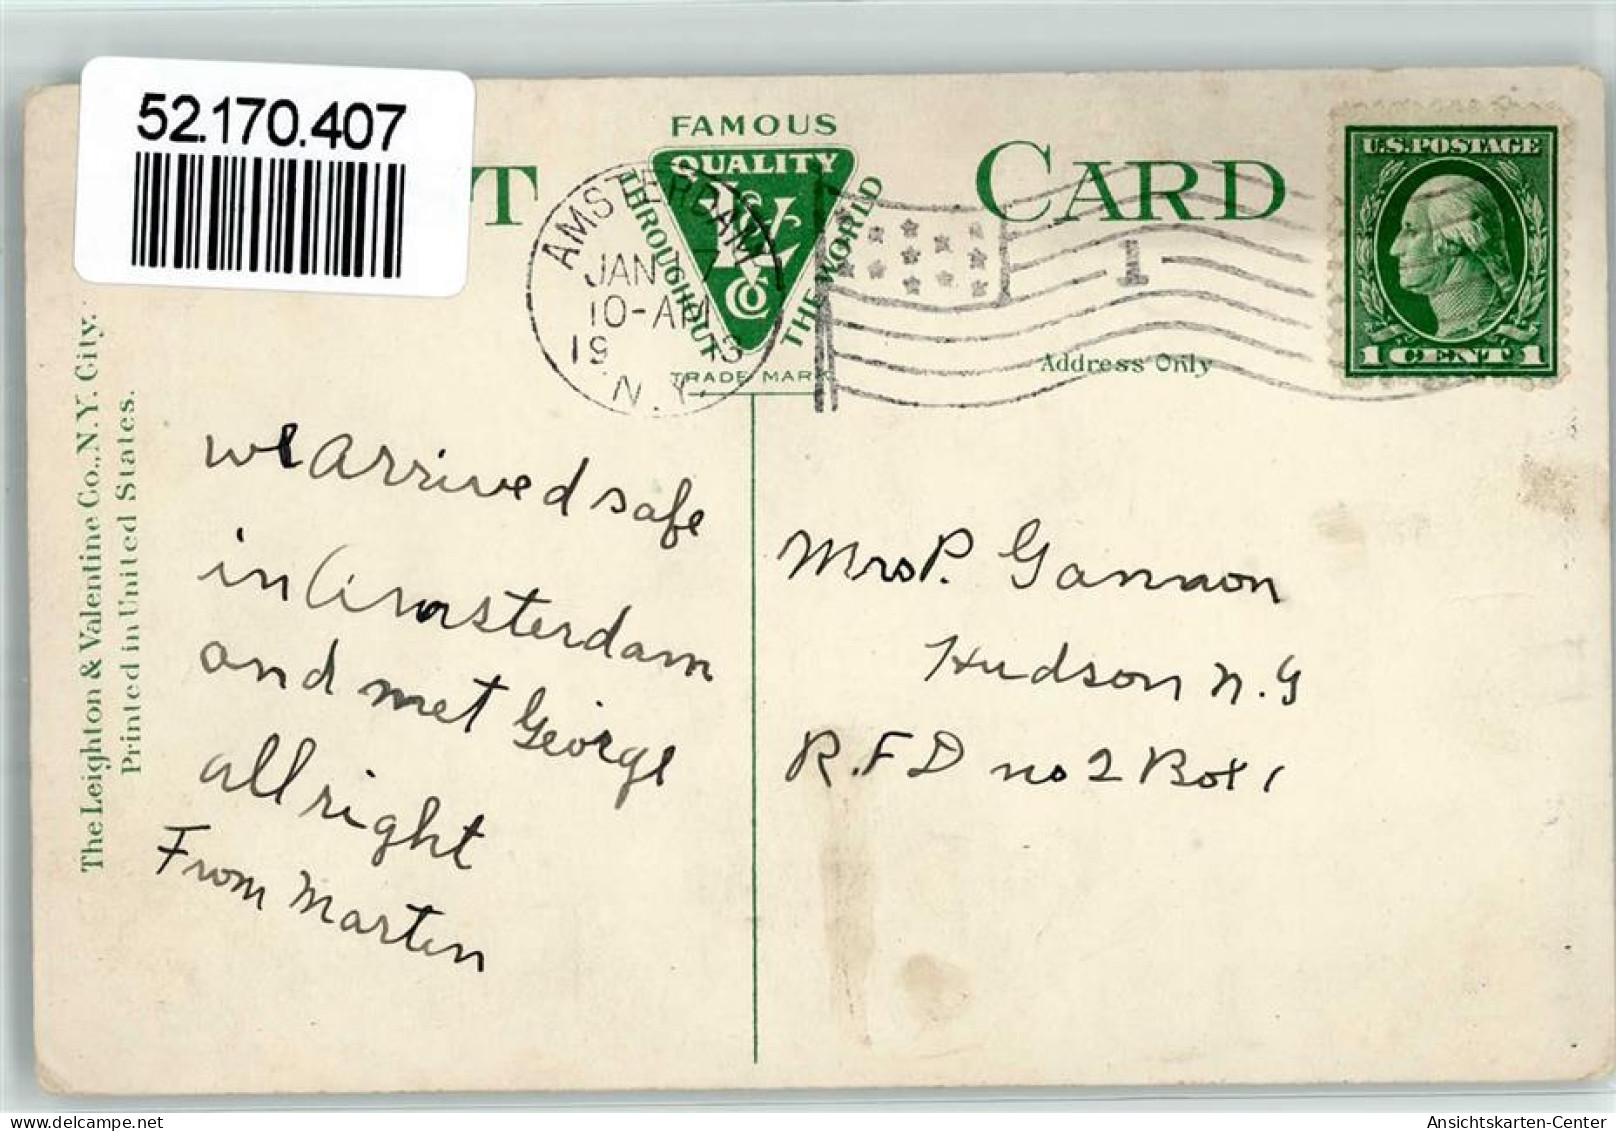 52.170.407
T
FAMOUS
QUALITY
THROUGHOUT THE WORLD
V & L
Co
TRADE MARK
CARD
Address Only
U.S. POSTAGE
1 CENT 1
AMSTERDAM
JAN 7
10-AM
1913
N.Y.
1
The Leighton & Valentine Co., N.Y. City.
Printed in United States.
we arrived safe
in Amsterdam
and met George
all right
From Marten
Mrs P. Gannon
Hudson N.Y
R.F.D no 2 Box 1
Ansichtskarten-Center